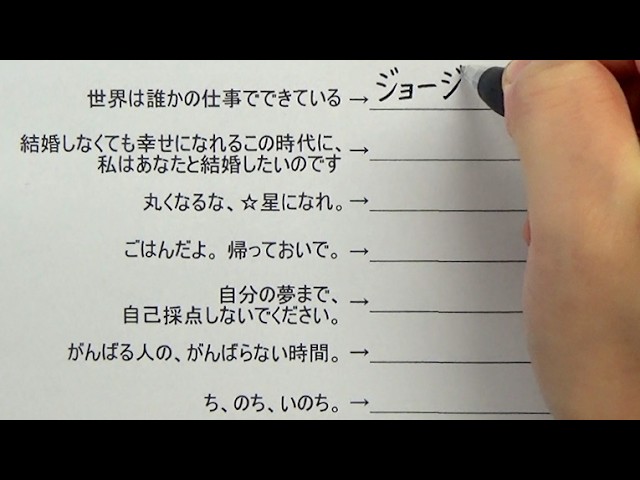 世界は誰かの仕事でできている → ジョージ
結婚しなくても幸せになれるこの時代に、
私はあなたと結婚したいのです →
丸くなるな、☆星になれ。 →
ごはんだよ。帰っておいで。 →
自分の夢まで、
自己採点しないでください。 →
がんばる人の、がんばらない時間。 →
ち、のち、いのち。 →